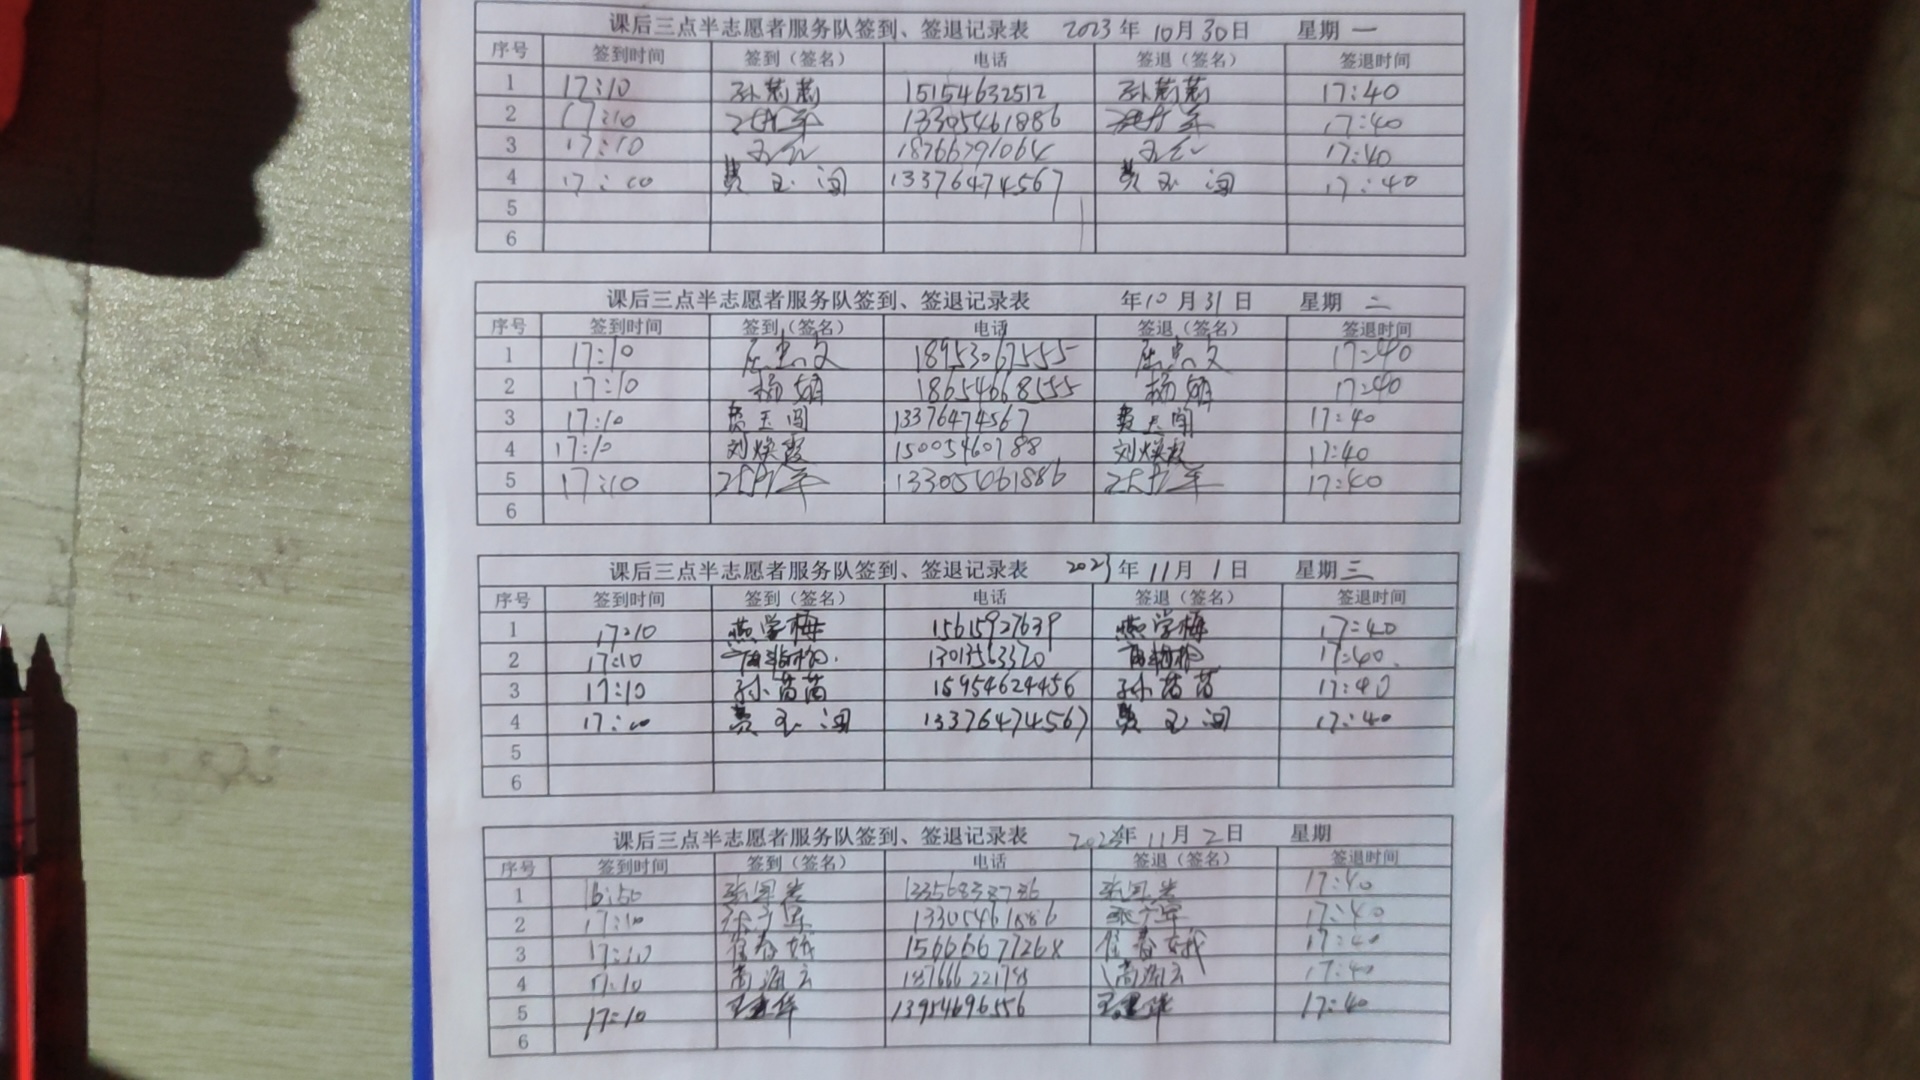 课后三点半志愿者服务队签到、签退记录表 2023年 10月 30日 星期 一
序号 签到时间 签到（签名） 电话 签退（签名） 签退时间
1 17:10 15154632512 17:40
2 17:10 13305461886 17:40
3 17:10 18766791064 17:40
4 17:10 费玉 13376474567 费玉 17:40
5
6
课后三点半志愿者服务队签到、签退记录表 年10月31日 星期 二
序号 签到时间 签到（签名） 电话 签退（签名） 签退时间
1 17:10 18953067555 17:40
2 17:10 杨娟 18654668555 杨娟 17:40
3 17:10 费玉 13376474567 费玉 17:40
4 17:10 刘焕霞 15005460788 刘焕霞 17:40
5 17:10 13305461886 17:40
6
课后三点半志愿者服务队签到、签退记录表 2023年 11月 1日 星期三
序号 签到时间 签到（签名） 电话 签退（签名） 签退时间
1 17:10 燕学梅 15615927639 燕学梅 17:40
2 17:10 17:40
3 17:10 孙茵茵 15954624456 孙茵茵 17:40
4 17:10 费玉 13376474567 费玉 17:40
5
6
课后三点半志愿者服务队签到、签退记录表 2023年 11月 2日 星期
序号 签到时间 签到（签名） 电话 签退（签名） 签退时间
1 16:50 17:40
2 17:10 13305461886 17:40
3 17:10 崔春娥 15666677268 崔春娥 17:40
4 17:10 尚海云 18766622178 尚海云 17:40
5 17:10 王建华 13954696556 王建华 17:40
6